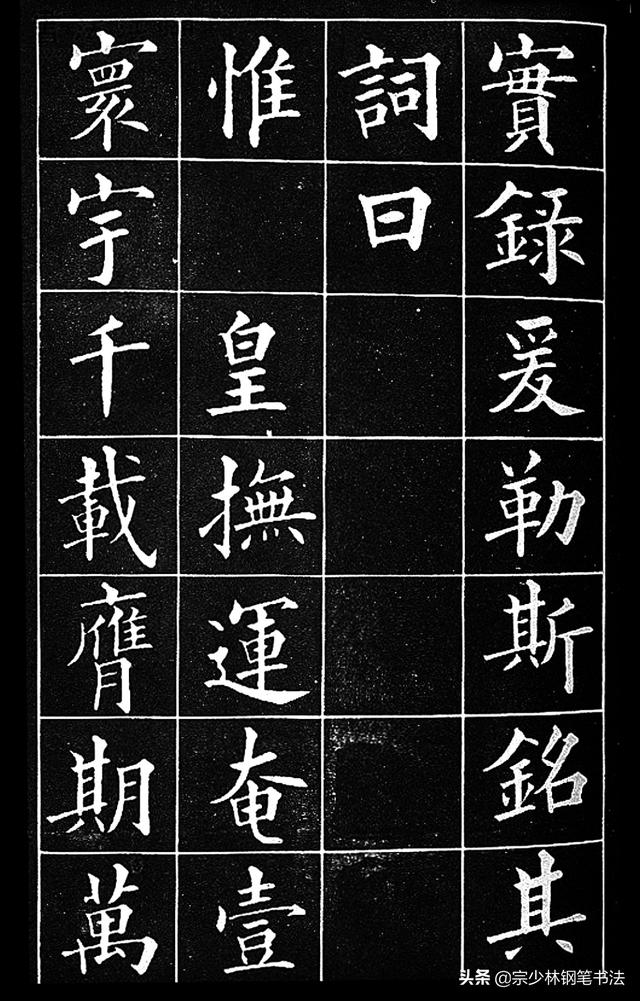 實錄爰勒斯銘其
詞曰
惟皇撫運奄壹
寰宇千載膺期萬
头条 @宗少林钢笔书法